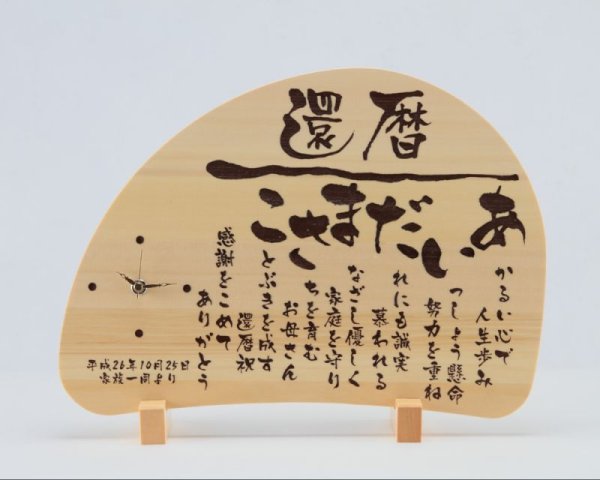 還暦
あいだまさこ
かるい心で
人生歩み
っしょう懸命
努力を重ね
れにも誠実
慕われる
なざし優しく
家庭を守り
ちを育む
お母さん
とぶきを成す
還暦祝
感謝をこめて
ありがとう
平成26年10月25日
家族一同より